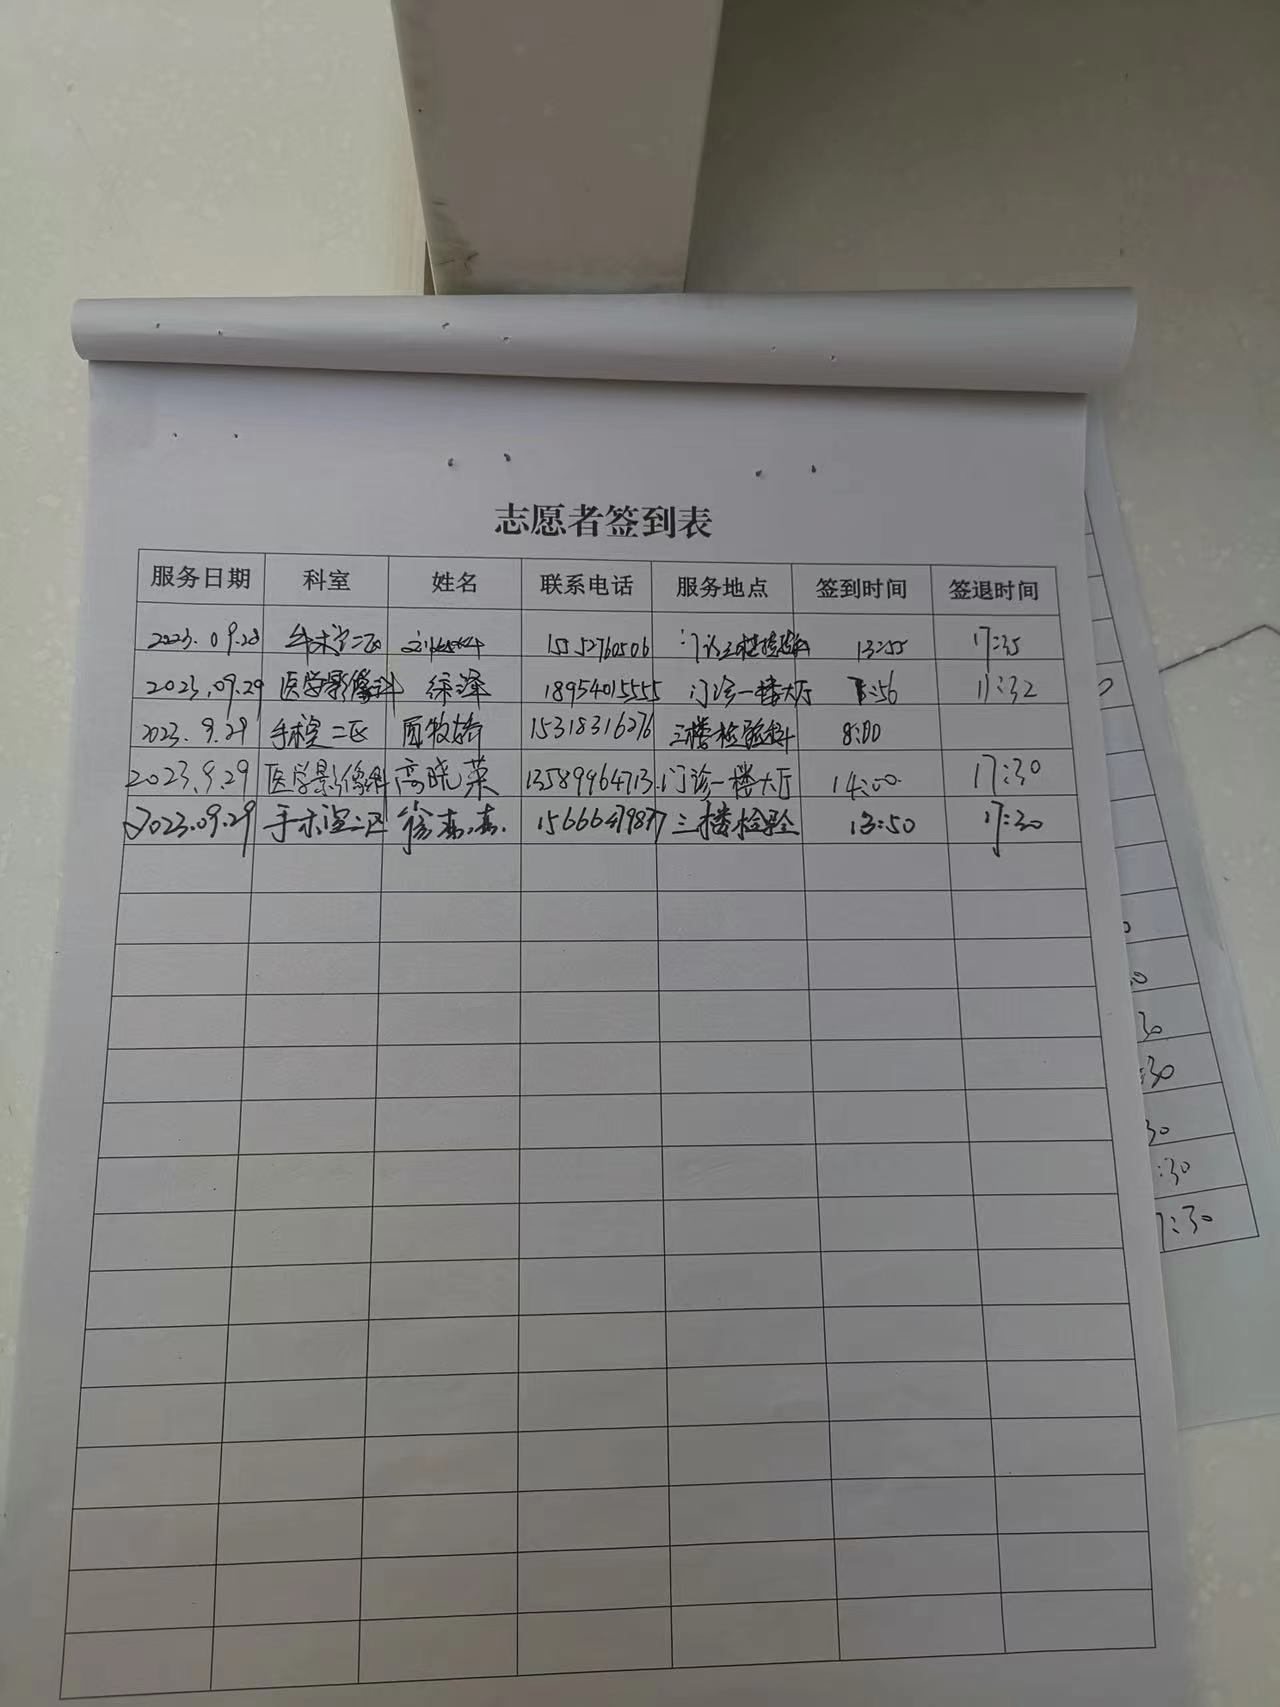 志愿者签到表
服务日期 科室 姓名 联系电话 服务地点 签到时间 签退时间
2023.09.28 手术室二区 15552760506 门诊三楼检验科 13:55 17:35
2023.09.29 医学影像科 徐泽 18954015555 门诊一楼大厅 :56 11:32
2023.9.29 手术室二区 周牧娇 15318316276 三楼检验科 8:00
2023.9.29 医学影像科 高晓荣 13589964713 门诊一楼大厅 14:00 17:30
2023.09.29 手术室二区 徐嘉嘉 三楼检验 13:50 17:30
30
:30
30
:30
17:30